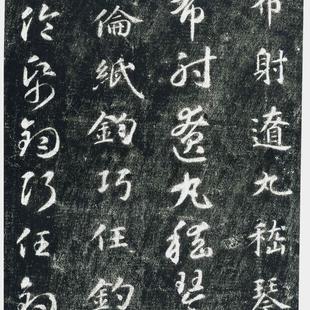 布射遼丸嵇琴
布射遼丸嵇琴
倫紙鈞巧任釣
倫紙鈞巧任釣